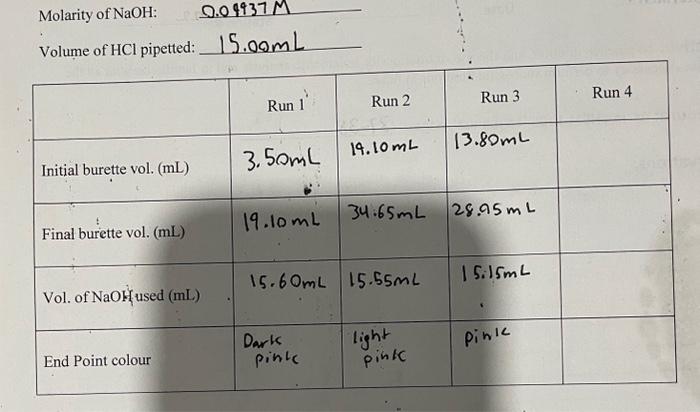 Molarity of NaOH: 0.09937 M
Volume of HCl pipetted: 15.00mL
Run 1 Run 2 Run 3 Run 4
Initial burette vol. (mL) 3.50mL 19.10mL 13.80mL
Final burette vol. (mL) 19.10mL 34.65mL 28.95mL
Vol. of NaOH used (mL) 15.60mL 15.55mL 15.15mL
End Point colour Dark pink light pink pink